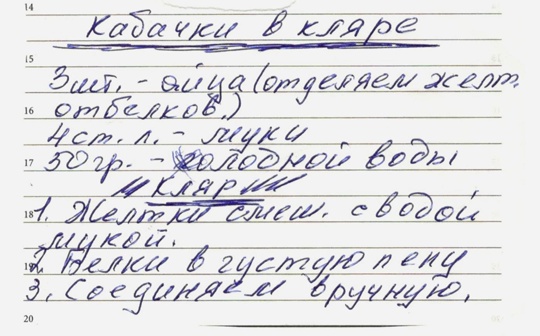 14
Кабачки в кляре
15
3шт. - яйца (отделяем желт.
16
от белков.)
4 ст. л. - муки
17
50 гр. - холодной воды
"Кляр"
18
1. Желтки смеш. с водой
мукой.
19
2. Белки в густую пену
3. Соединяем вручную.
20